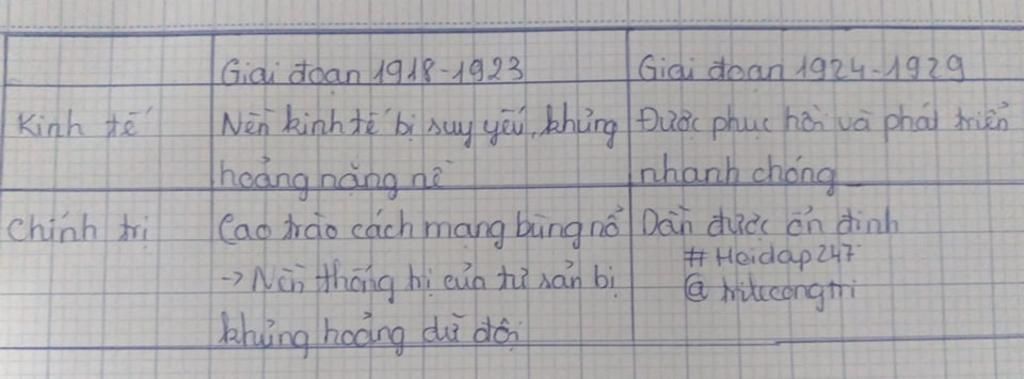 Giai đoạn 1918-1923
Giai đoạn 1924-1929
Kinh tế
Nền kinh tế bị suy yếu, khủng
hoảng nặng nề
Được phục hồi và phát triển
nhanh chóng
Chính trị
Cao trào cách mạng bùng nổ
-> Nền thống trị của tư sản bị
khủng hoảng dữ dội
Dần được ổn định
#Hoidap247